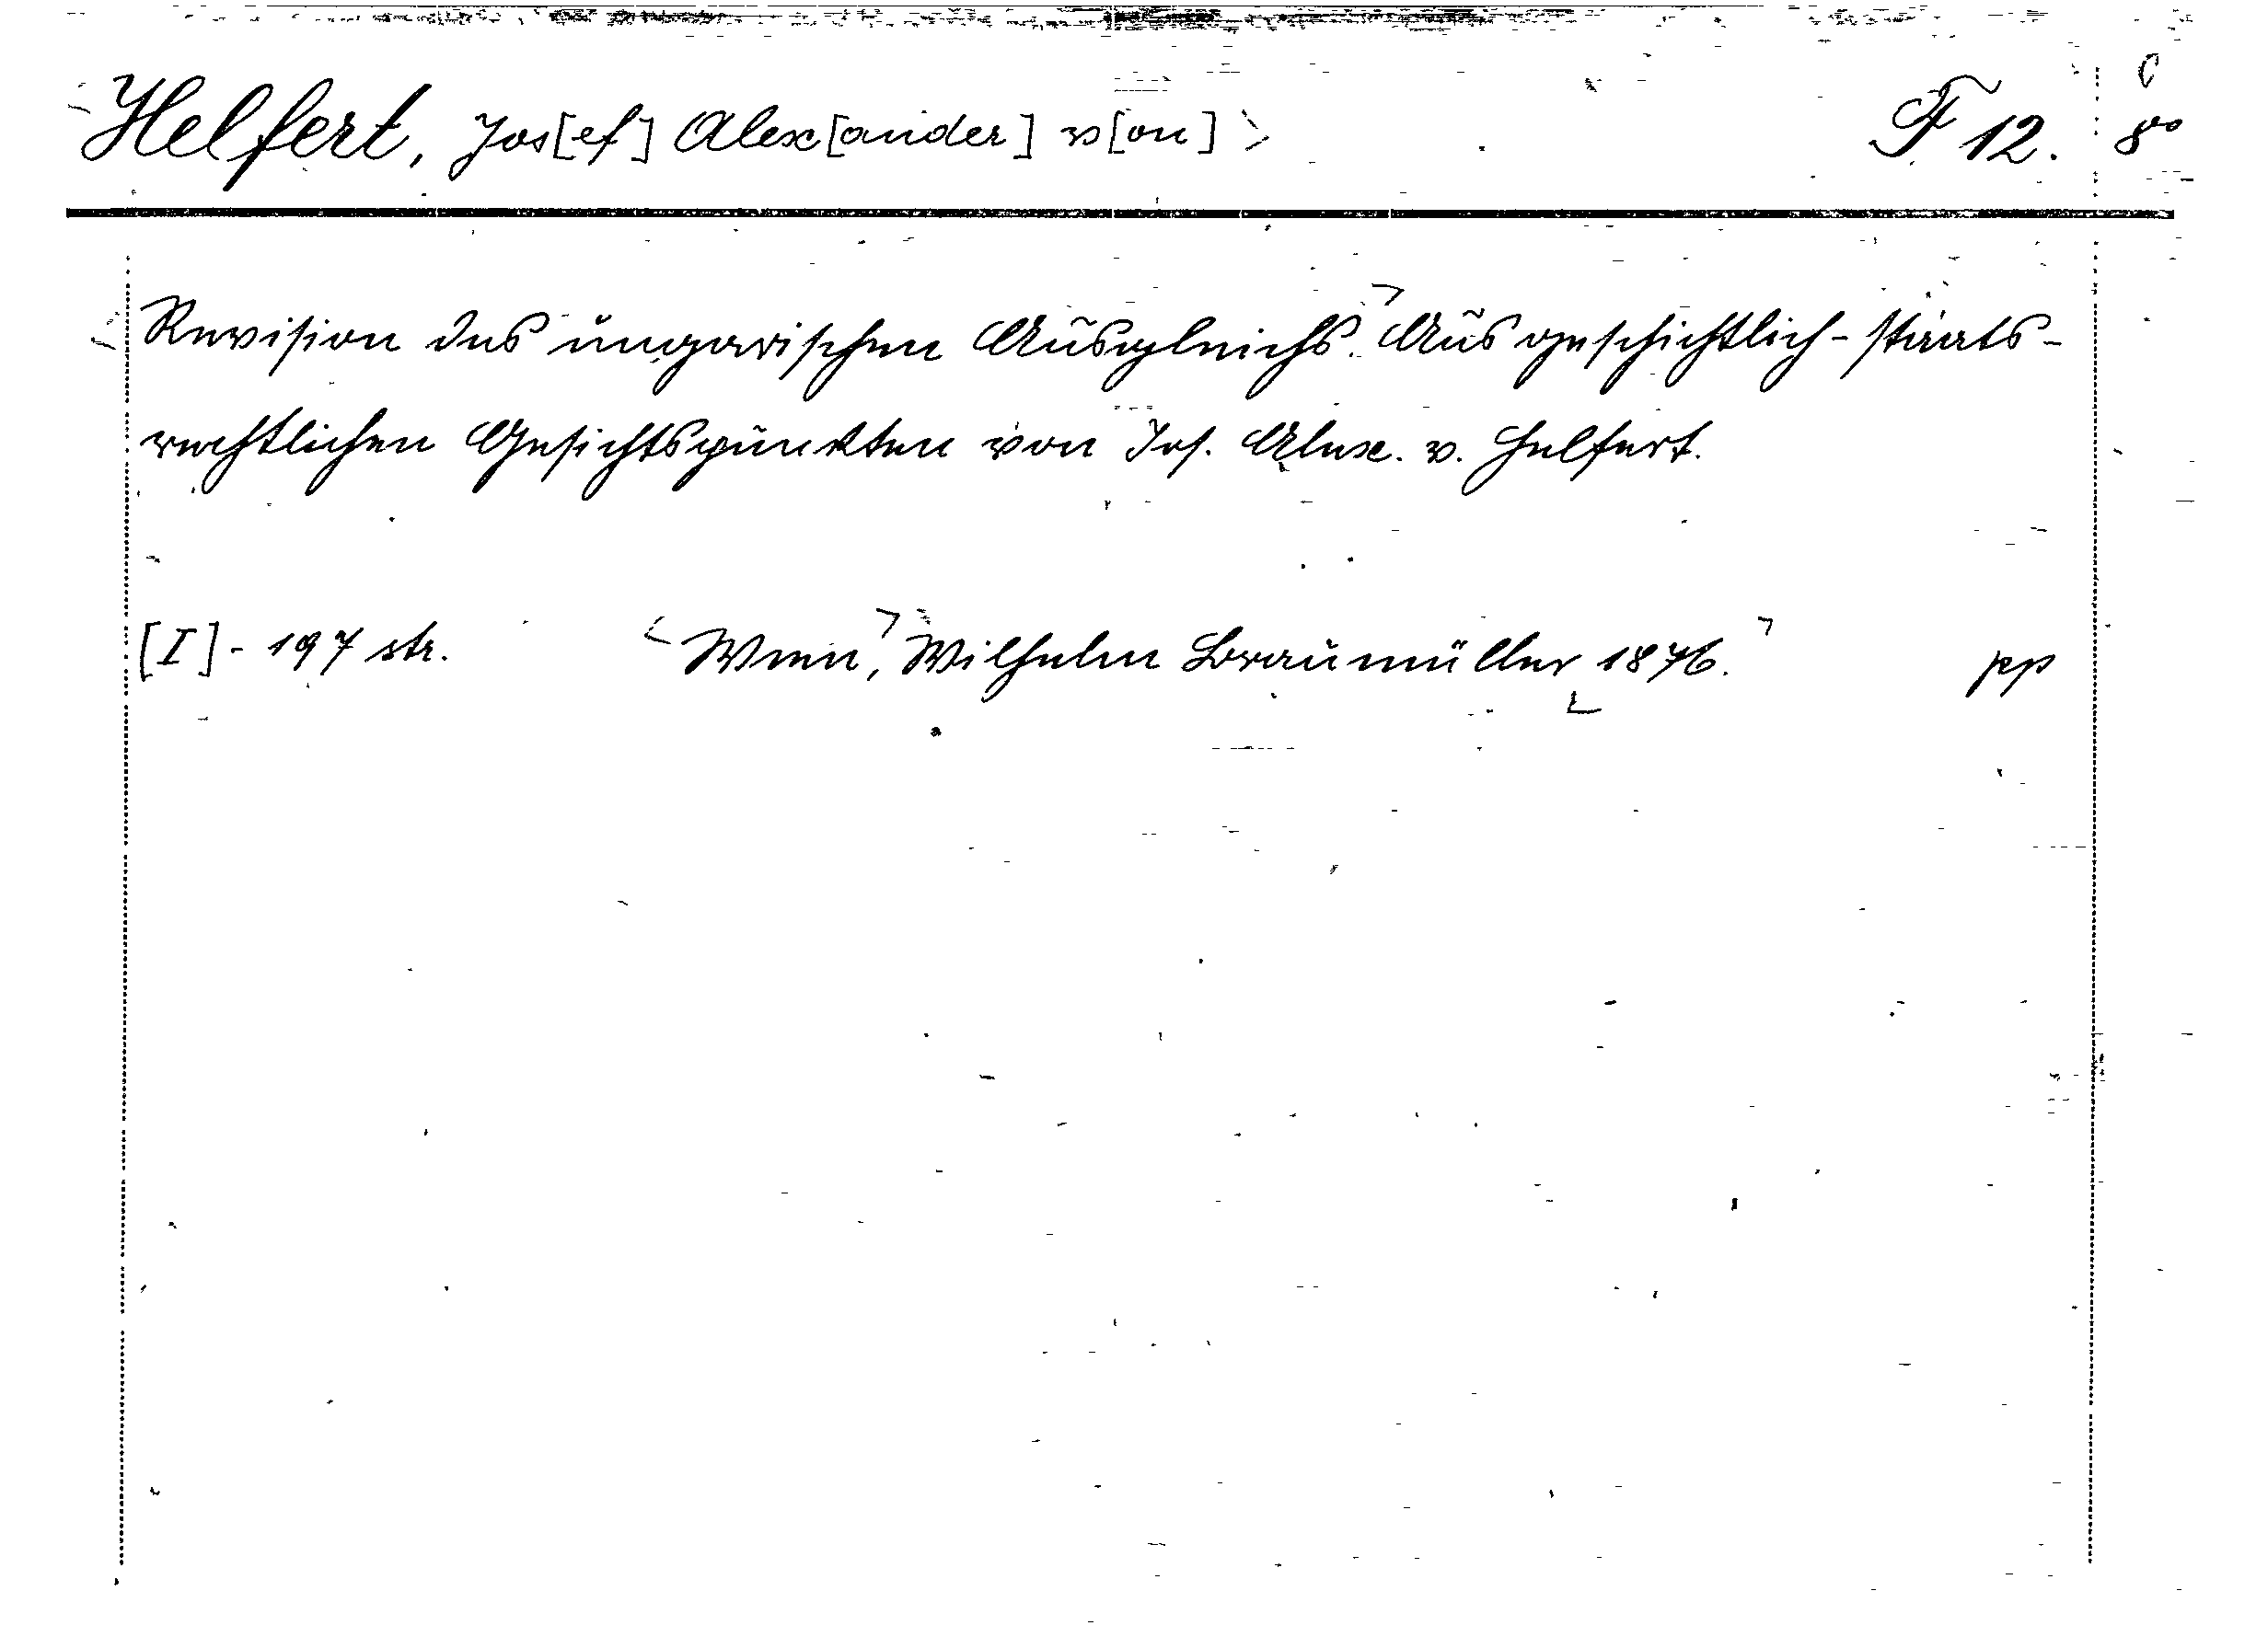 Helfert, Jos[ef] Alex[ander] v[on] F 12. 8°
Revision des ungarischen Ausgleichs. Aus geschichtlich-staats-
rechtlichen Gesichtspunkten von Jos. Alex. v. Helfert.
[I] - 197 str. Wien, Wilhelm Braumüller 1876. pp